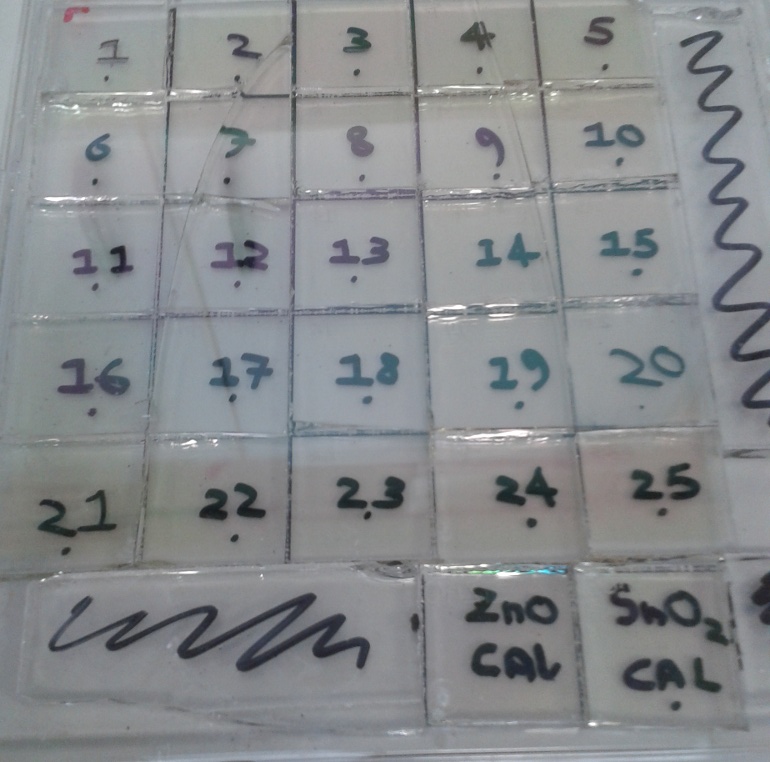 1 2 3 4 5
6 7 8 9 10
11 12 13 14 15
16 17 18 19 20
21 22 23 24 25
ZnO SnO₂
CAL CAL